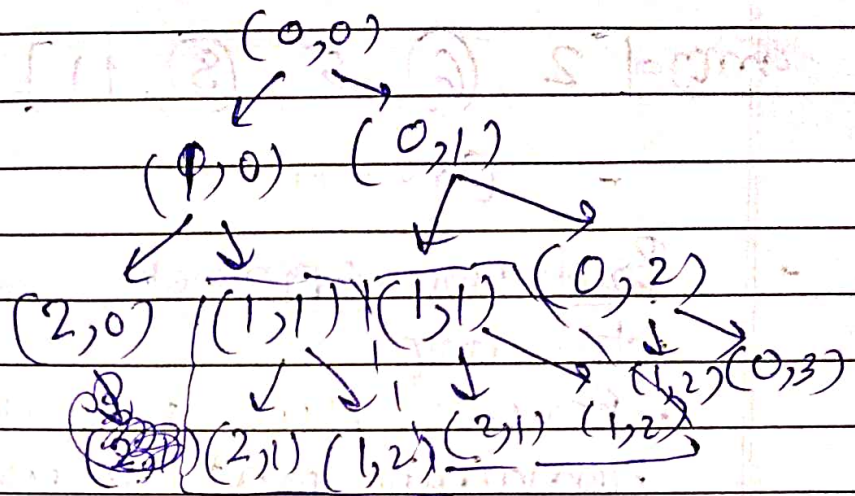 (0,0)
(1,0) (0,1)
(2,0) (1,1) (1,1) (0,2)
(1,2) (0,3)
(2,1) (1,2) (2,1) (1,2)